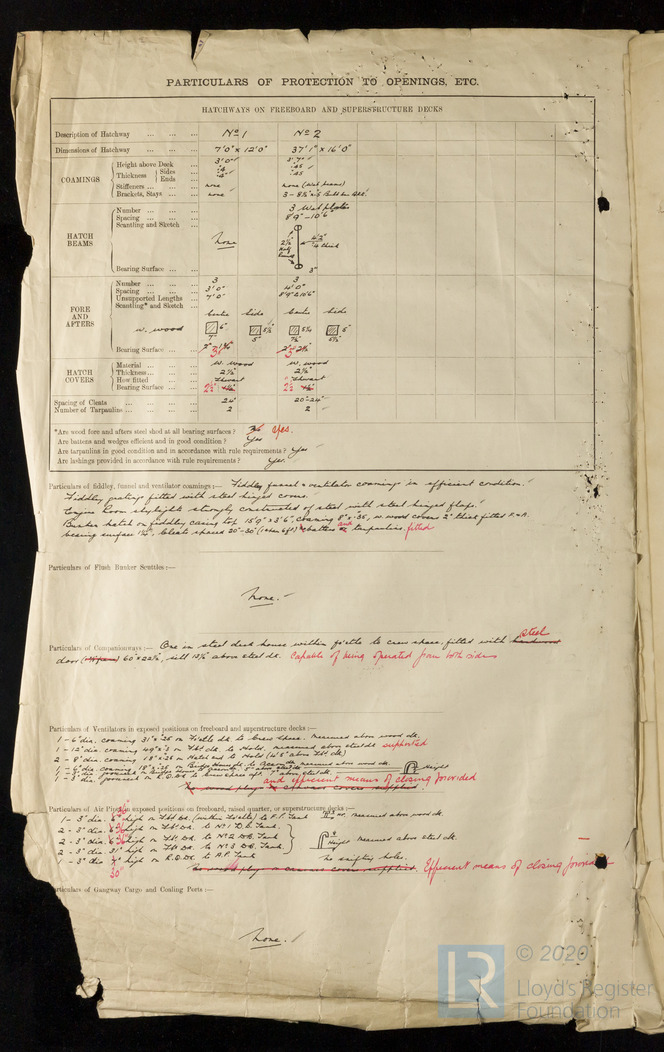 PARTICULARS OF PROTECTION TO OPENINGS, ETC.
HATCHWAYS ON FREEBOARD AND SUPERSTRUCTURE DECKS
Description of Hatchway ... ... ... No 1 No 2
Dimensions of Hatchway ... ... ... 7'0" x 12'0" 37'1" x 16'0"
COAMINGS
Height above Deck ... 3'0" 3'7"
Thickness { Sides ... .4 .45
Ends ... .4 .45
Stiffeners ... ... ... none none
Brackets, Stays ... ... none
HATCH BEAMS
Number ... ... ... 3 Web plates
Spacing ... ... ... 8'9" – 10'6"
Scantling and Sketch ...
None
Bearing Surface ... ... 3"
FORE AND AFTERS
Number ... ... ... 3 3
Spacing ... ... ... 3'0" 4'0"
Unsupported Lengths ... 7'0" 8'9" & 10'6"
Scantling* and Sketch ...
Centre Side Centre Side
w. wood 6" 5½" 5"
7" 5" 7½"
Bearing Surface ... ... 3" 3"
HATCH COVERS
Material ... ... ... w. wood w. wood
Thickness ... ... ... 2½" 2½"
How fitted ... ... Thwart Thwart
Bearing Surface ... ... 2½" 2½
Spacing of Cleats ... ... ... 24" 20"-24"
Number of Tarpaulins ... ... ... ... 2 2
*Are wood fore and afters steel shod at all bearing surfaces? yes.
Are battens and wedges efficient and in good condition? Yes
Are tarpaulins in good condition and in accordance with rule requirements? Yes
Are lashings provided in accordance with rule requirements? Yes.
Particulars of fiddley, funnel and ventilator coamings:— Fiddley funnel & ventilator coamings in efficient condition.
Fiddley grating fitted with steel hinged covers.
Engine Room skylights strongly constructed of steel with steel hinged flaps.
Bunker hatch on fiddley casing top 15'9" x 3'6", coaming 8" x .35, w. wood covers 2" thick fitted F. & A.
bearing surface 1¾". Cleats spaced 20"-30" battens and tarpaulins fitted
Particulars of Flush Bunker Scuttles:—
None.
Particulars of Companionways:— One in steel deck house within f'cstle to crew space, fitted with steel
door 60" x 22½", sill 13½" above steel dk. Capable of being operated from both sides
Particulars of Ventilators in exposed positions on freeboard and superstructure decks:—
1 – 6" dia. coaming 31" x .25 on F'cstle dk. to Crew Space. measured above wood dk.
1 – 12" dia. coaming 49" x .3 on Fbd dk. to Hold. measured above steel dk supported
2 – 8" dia. coaming 18" x .25 on Hatch end to Hold
Height
and efficient means of closing provided
Particulars of Air Pipes in exposed positions on freeboard, raised quarter, or superstructure decks:—
1 – 3" dia. high on Fbd Dk. (within F'cstle) to F.P. Tank measured above wood dk.
2 – 3" dia. high on Fbd Dk. to No 1 D.B. Tank.
2 – 3" dia. high on Fbd. Dk. to No 2 D.B. Tank. Height measured above steel dk.
2 – 3" dia. 31" high on Fbd Dk. to No 3 D.B. Tank.
1 – 3" dia high on R.Q. Dk to A.P. Tank No snifting holes.
30" Efficient means of closing provided
Particulars of Gangway Cargo and Coaling Ports:—
None.
LR © 2020
Lloyd's Register
Foundation